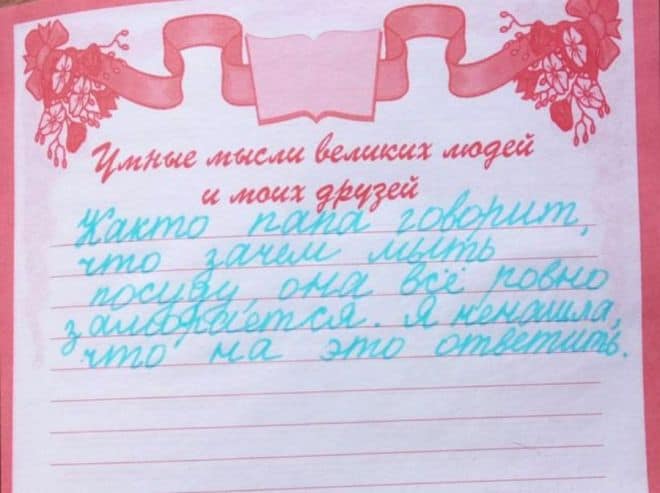 Умные мысли великих людей
и моих друзей
Както папа говорит,
что зачем мыть
посуду, она всё ровно
заморается. Я ненашла,
что на это ответить.